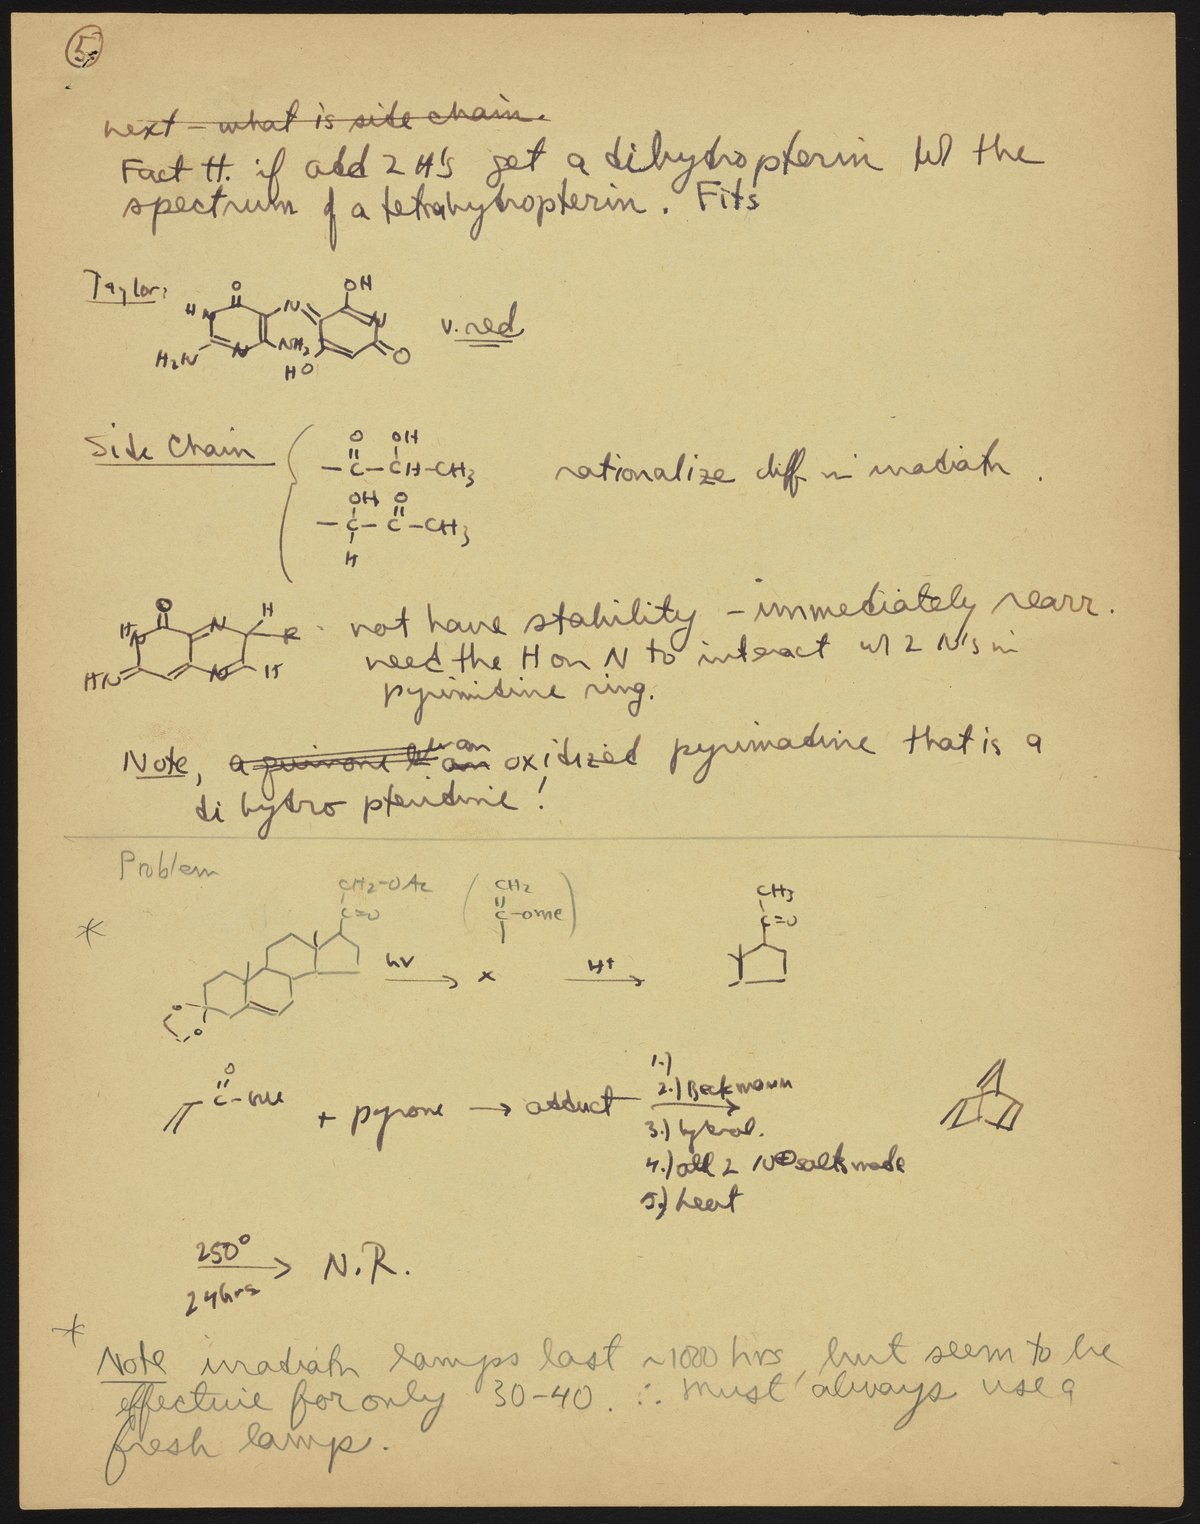 5
next – what is side chain.
Fact H. if add 2 H's get a dihydropterin w/ the
spectrum of a tetrahydropterin. Fits
Taylor:
O
OH
H N
N
N
H2N
N
NH2
HO
O
v. red
Side Chain
O OH
–C–CH–CH3
OH O
–C–C–CH3
H
rationalize diff in irradiatn.
O
HN
N
H
R
HN
N
H
not have stability – immediately rearr.
need the H on N to interact w/ 2 N's in
pyrimidine ring.
Note, a quinone an oxidized pyrimadine that is a
dihydro pteridine!
Problem
*
CH2–OAc
C=O
(CH2
C–OMe)
CH3
C=O
O
O
hν
x
H+
O
C–me
+ pyrone → adduct
1.)
2.) Beckmann
3.) hydrol.
4.) all 2 N⊕ salts made
5.) heat
250°
24hrs
N.R.
*
Note irradiatn lamps last ~1000 hrs, but seem to be
effective for only 30–40. ∴ must always use a
fresh lamp.